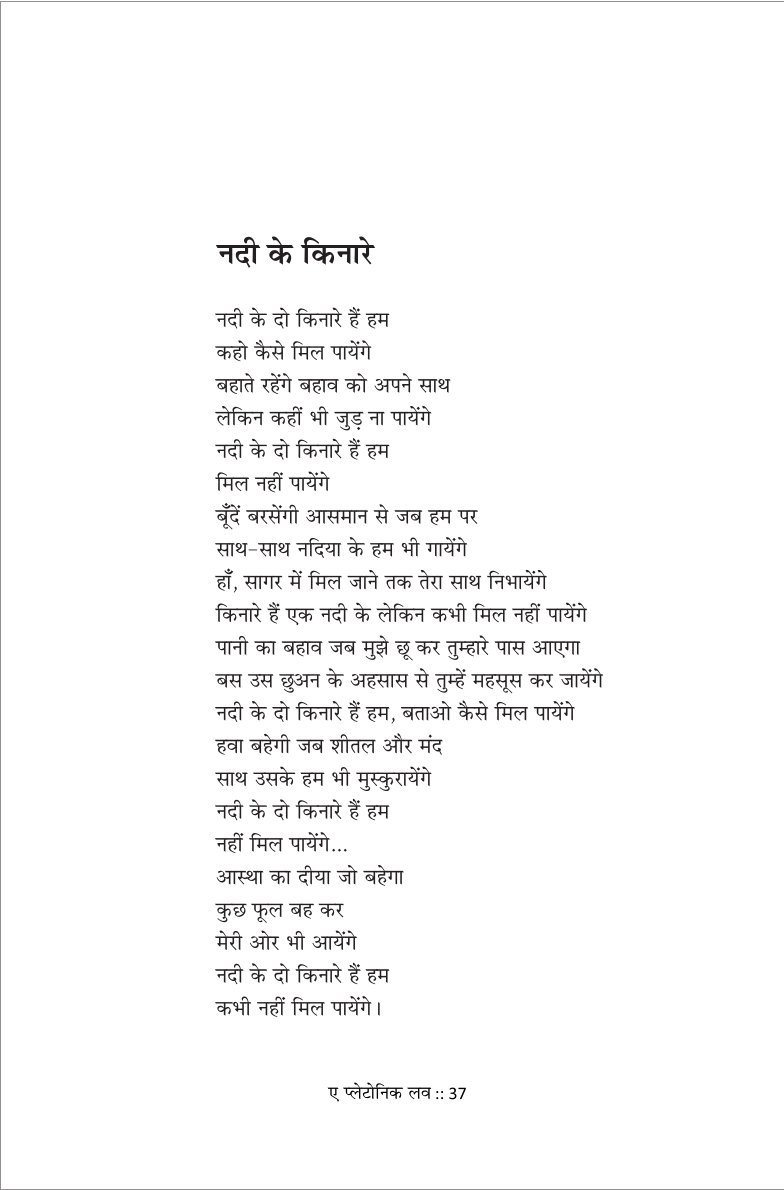 नदी के किनारे
नदी के दो किनारे हैं हम
कहो कैसे मिल पायेंगे
बहाते रहेंगे बहाव को अपने साथ
लेकिन कहीं भी जुड़ ना पायेंगे
नदी के दो किनारे हैं हम
मिल नहीं पायेंगे
बूँदें बरसेंगी आसमान से जब हम पर
साथ-साथ नदिया के हम भी गायेंगे
हाँ, सागर में मिल जाने तक तेरा साथ निभायेंगे
किनारे हैं एक नदी के लेकिन कभी मिल नहीं पायेंगे
पानी का बहाव जब मुझे छू कर तुम्हारे पास आएगा
बस उस छुअन के अहसास से तुम्हें महसूस कर जायेंगे
नदी के दो किनारे हैं हम, बताओ कैसे मिल पायेंगे
हवा बहेगी जब शीतल और मंद
साथ उसके हम भी मुस्कुरायेंगे
नदी के दो किनारे हैं हम
नहीं मिल पायेंगे...
आस्था का दीया जो बहेगा
कुछ फूल बह कर
मेरी ओर भी आयेंगे
नदी के दो किनारे हैं हम
कभी नहीं मिल पायेंगे।
ए प्लेटोनिक लव :: 37